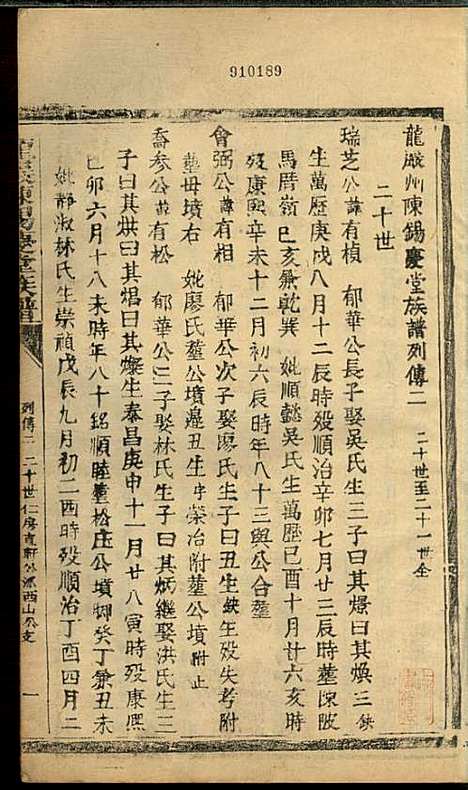 910189
龍巖州陳錫慶堂族譜列傳二 二十世至二十一世全
二十世
瑞芝公諱有楨 郁華公長子娶吳氏生三子曰其燝曰其煥三缺
生萬歷庚戌八月十二辰時殁順治辛卯七月廿三辰時塟陳陂
馬厝嵛巳亥兼乾巽 妣順懿吳氏生萬歷己酉十月廿六亥時
殁康熙辛未十二月初六辰時年八十三與公合塟
會弼公諱有相 郁華公次子娶廖氏生子曰丑生缺生殁失考附
塟母墳右 妣廖氏塟公墳邉丑生字榮治附塟公墳附止
喬參公諱有松 郁華公三子娶林氏生子曰其炳繼娶洪氏生三
子曰其烘曰其焻曰其燦生泰昌庚申十一月廿八寅時殁康熙
己卯六月十八未時年八十銘順睦塟松庄公墳脚癸丁兼丑未
妣靜淑林氏生崇禎戊辰九月初二酉時殁順治丁酉四月二
列傳二 二十世仁房直軒公派西山公支 一